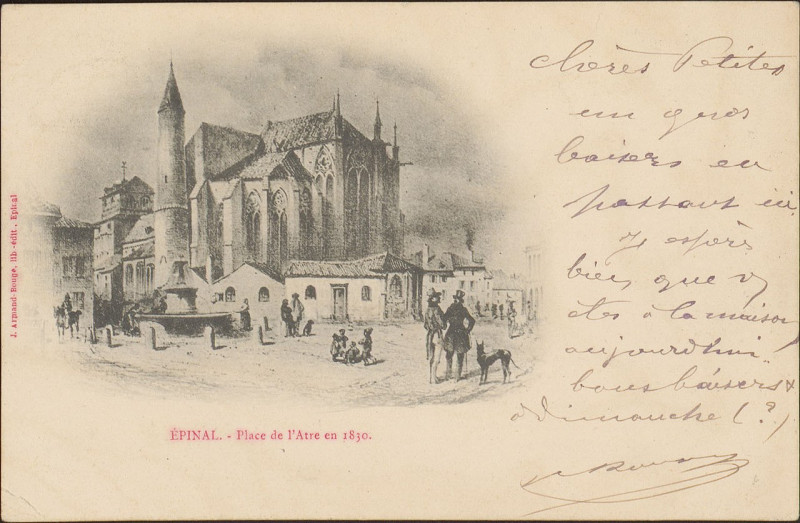 chères Petites
un gros
baisers en
passant ici,
J'espère
bien que vs
êtes à la maison
aujourd'hui
bons baisers &
à dimanche (?)
ÉPINAL. - Place de l'Atre en 1830.
J. Armand-Rouge, lith.-édit., Epinal